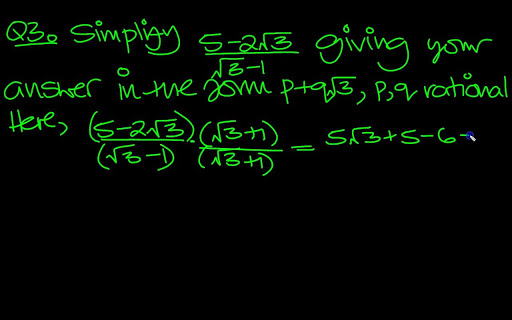 Q3. Simplify (5-2√3)/(√3-1) giving your
answer in the form p+q√3, p,q rational
Here, (5-2√3)/(√3-1) · (√3+1)/(√3+1) = 5√3+5-6-